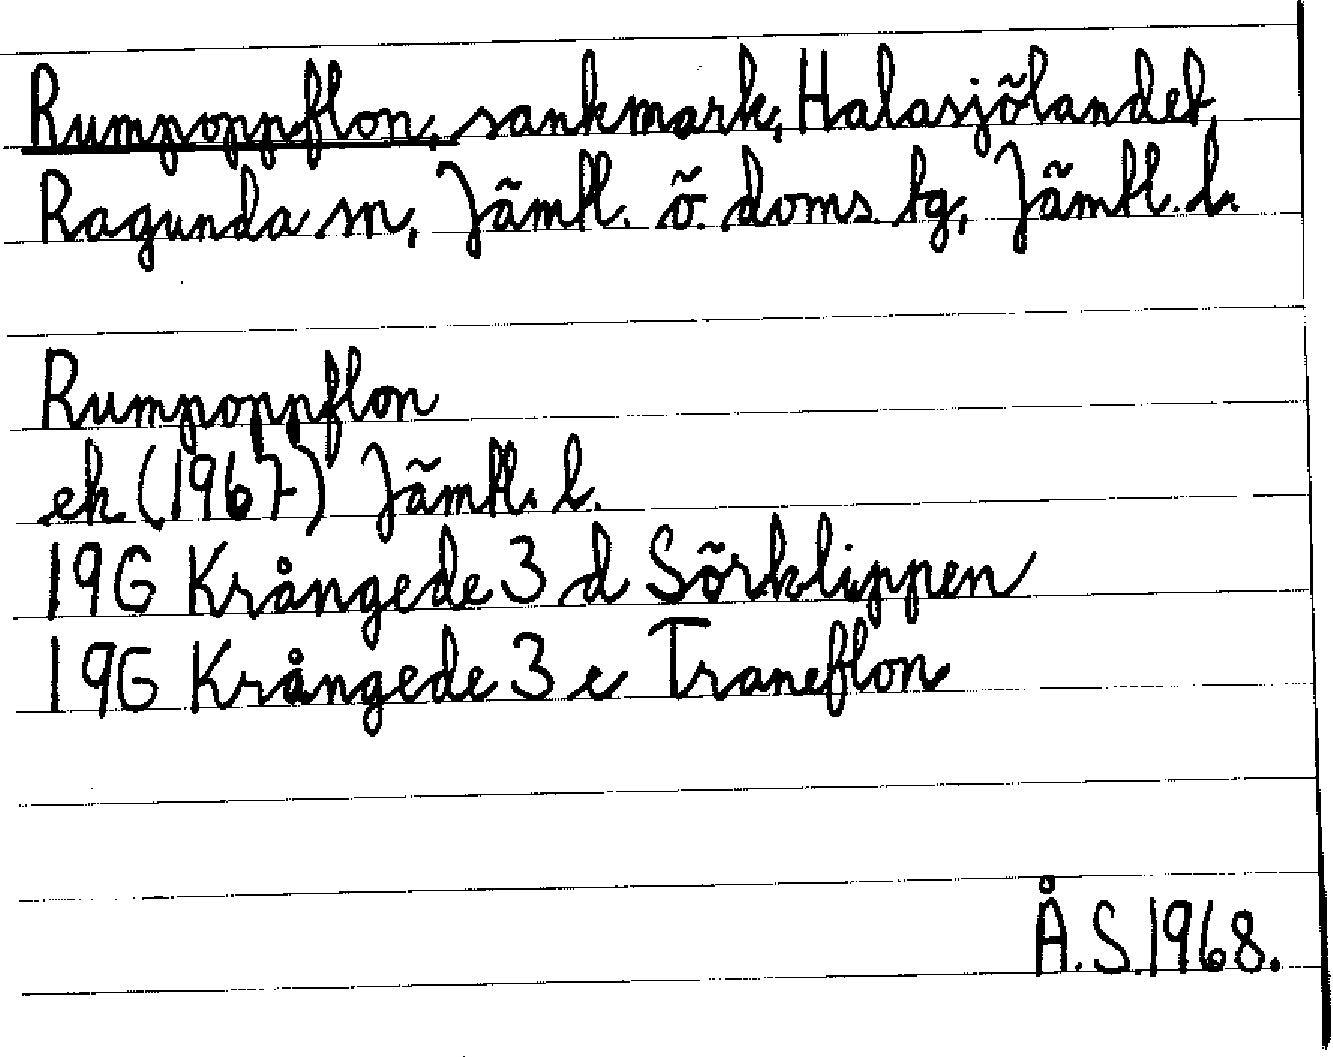 Rumpoppflon, sankmark, Halasjölandet,
Ragunda sn, Jämtl. ö. doms. tg, Jämtl. l.
Rumpoppflon
ek (1967) Jämtl. l.
19G Krångede 3 d Sörklippen
19G Krångede 3 e Traneflon
Å.S. 1968.